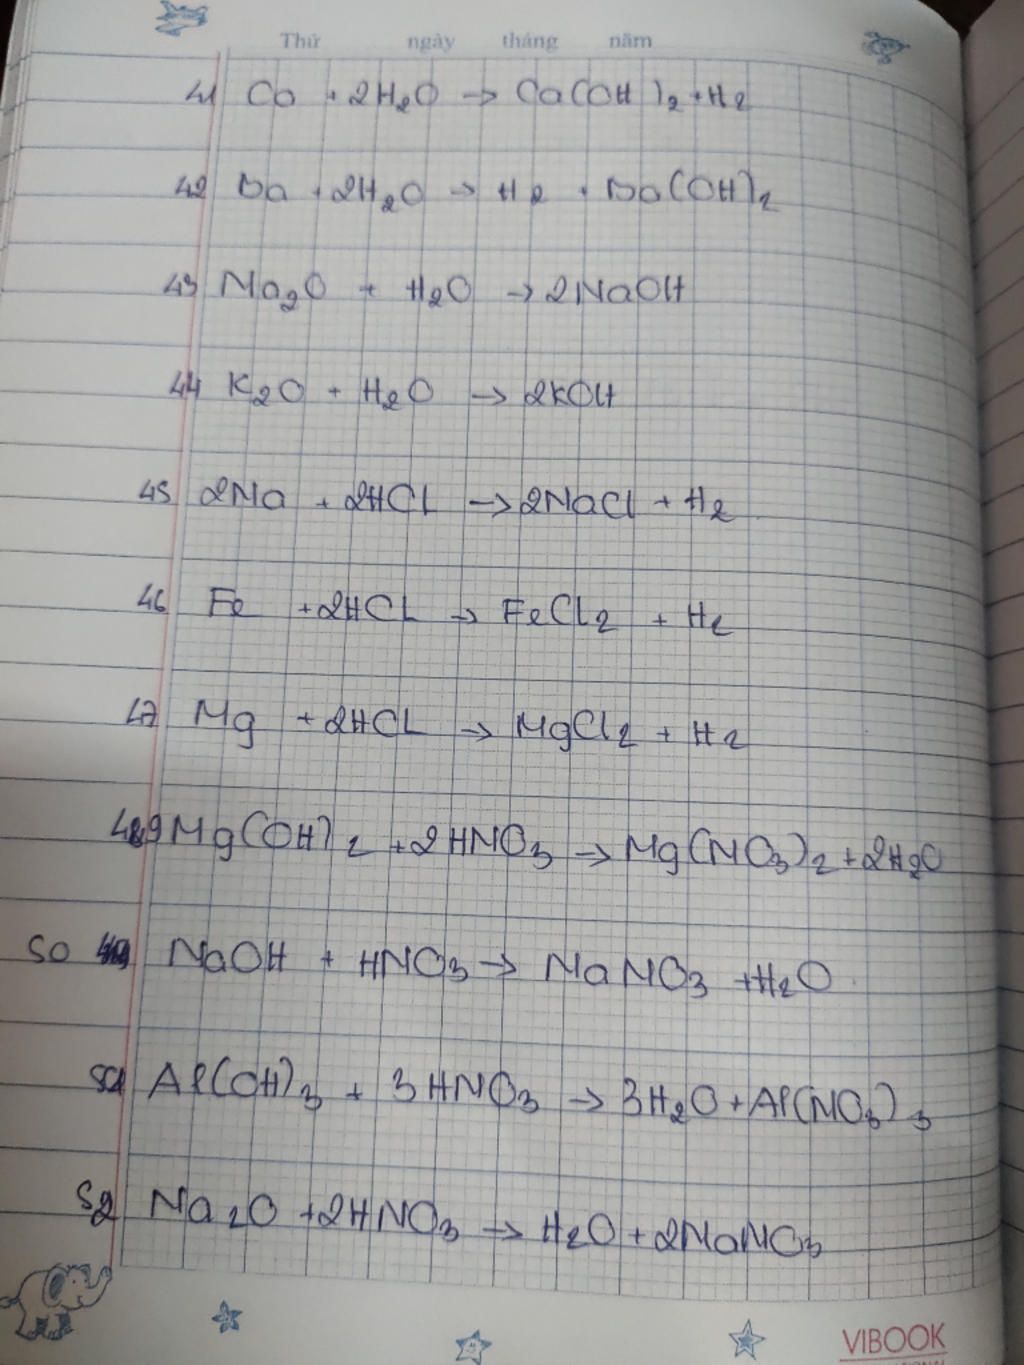 Thứ ngày tháng năm
41 Ca + 2H2O → Ca(OH)2 + H2
42 Ba + 2H2O → H2 + Ba(OH)2
43 Na2O + H2O → 2NaOH
44 K2O + H2O → 2KOH
45 2Na + 2HCl → 2NaCl + H2
46 Fe + 2HCl → FeCl2 + H2
47 Mg + 2HCl → MgCl2 + H2
49 Mg(OH)2 + 2HNO3 → Mg(NO3)2 + 2H2O
50 NaOH + HNO3 → NaNO3 + H2O
51 Al(OH)3 + 3HNO3 → 3H2O + Al(NO3)3
52 Na2O + 2HNO3 → H2O + 2NaNO3
VIBOOK